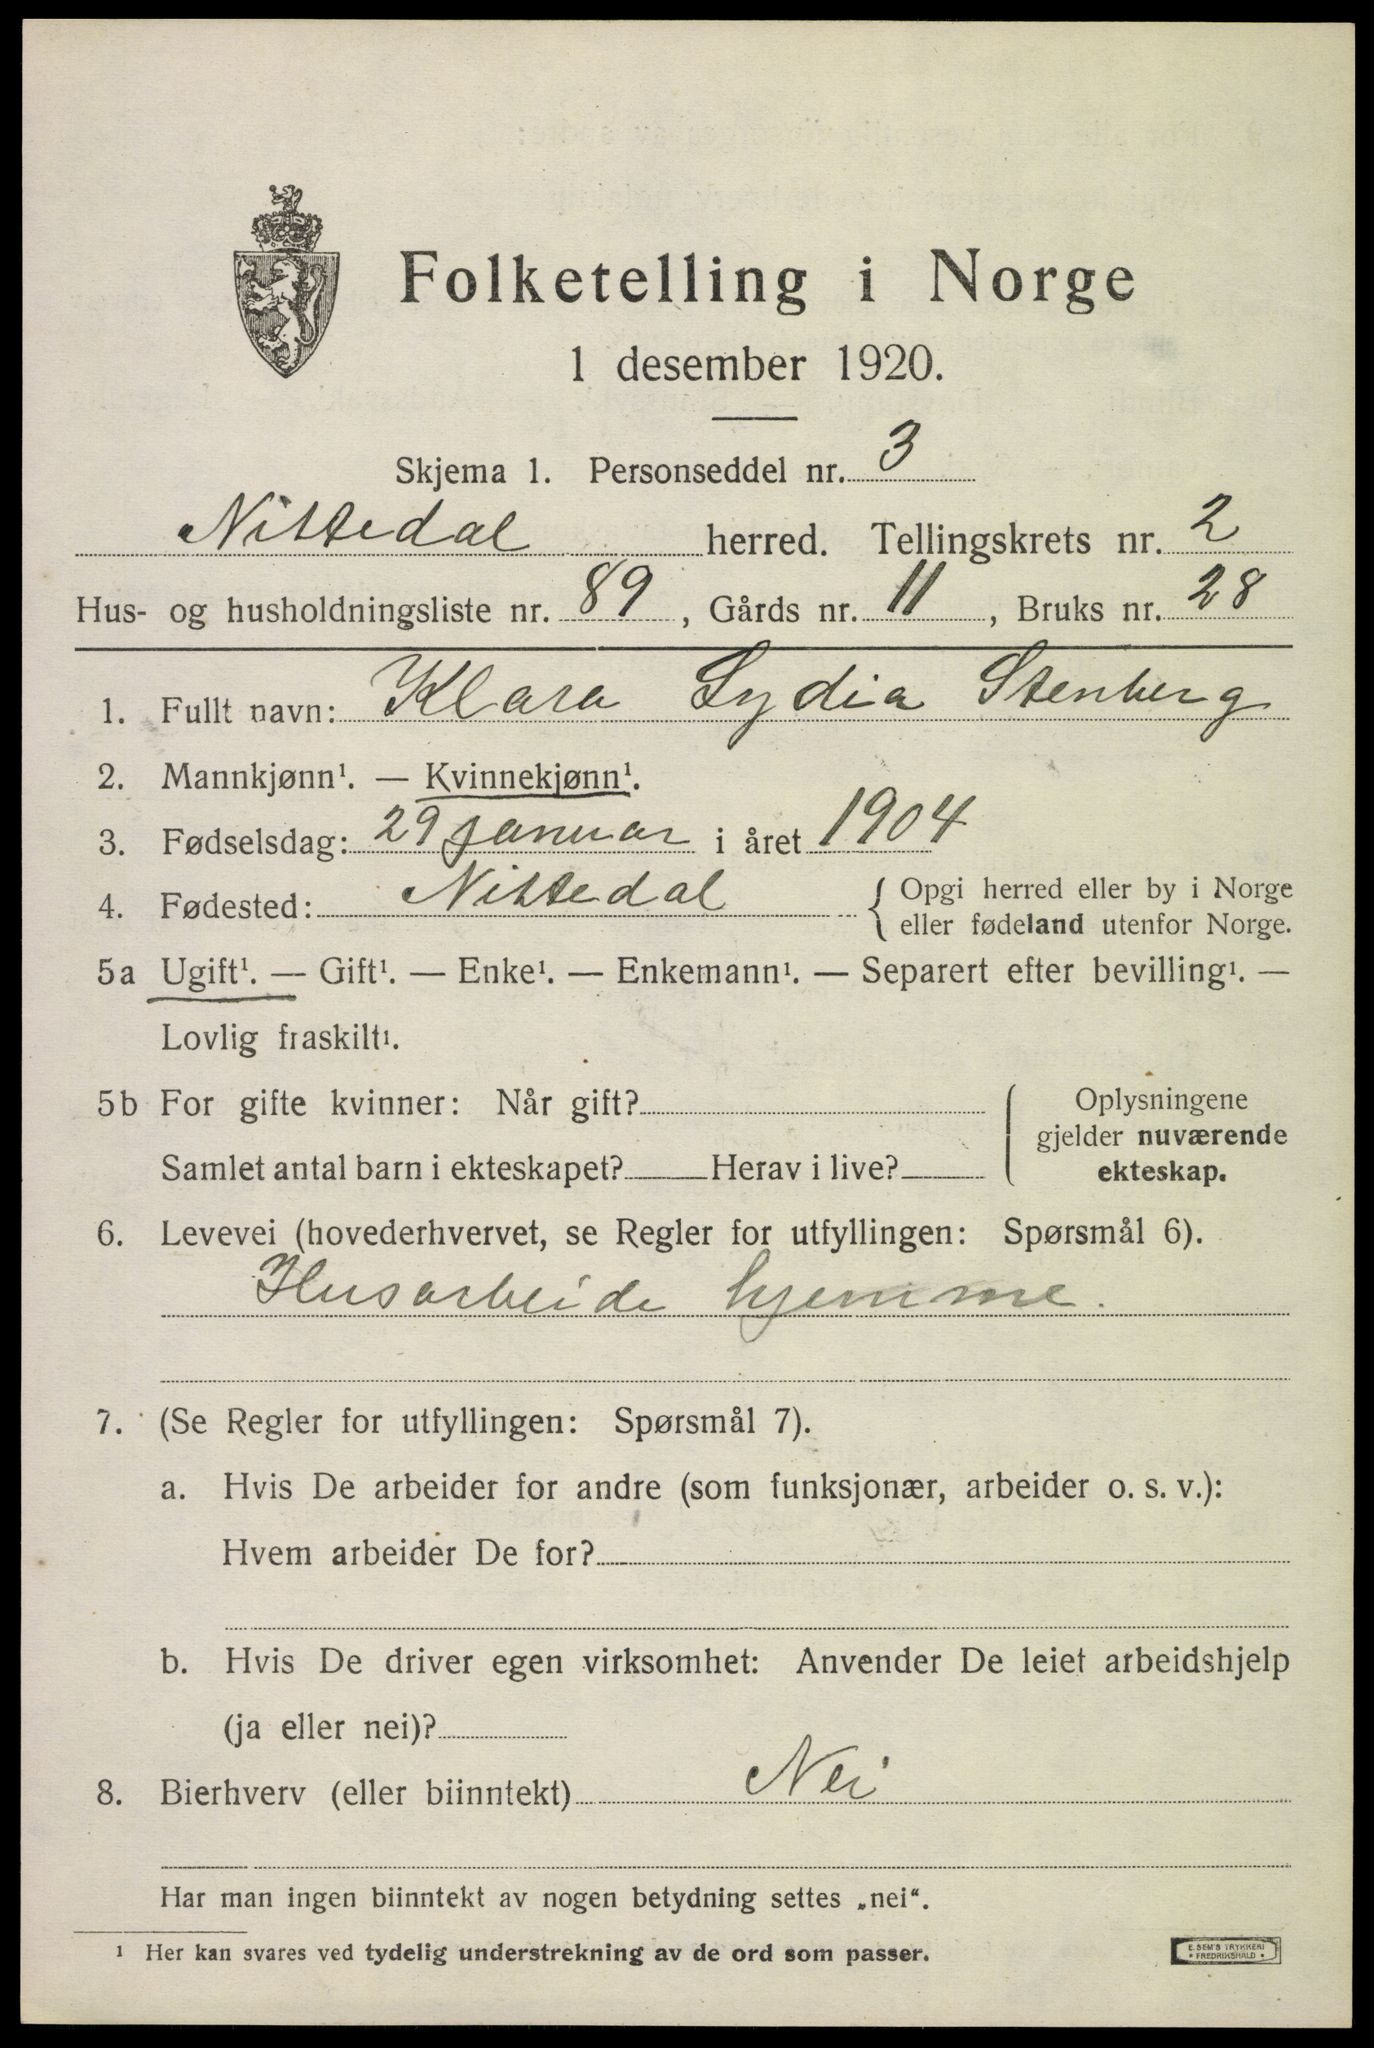 Folketelling i Norge
1 desember 1920.
Skjema 1. Personseddel nr. 3
Nittedal herred. Tellingskrets nr. 2
Hus- og husholdningsliste nr. 89, Gårds nr. 11, Bruks nr. 28
1. Fullt navn: Klara Lydia Stenberg
2. Mannkjønn¹. — Kvinnekjønn¹.
3. Fødselsdag: 29 januar i året 1904
4. Fødested: Nittedal { Opgi herred eller by i Norge
eller fødeland utenfor Norge.
5a Ugift¹. — Gift¹. — Enke¹. — Enkemann¹. — Separert efter bevilling¹. —
Lovlig fraskilt¹.
5b For gifte kvinner: Når gift?
Samlet antal barn i ekteskapet? Herav i live?
Oplysningene
gjelder nuværende
ekteskap.
6. Levevei (hovederhvervet, se Regler for utfyllingen: Spørsmål 6).
Husarbeide hjemme.
7. (Se Regler for utfyllingen: Spørsmål 7).
a. Hvis De arbeider for andre (som funksjonær, arbeider o. s. v.):
Hvem arbeider De for?
b. Hvis De driver egen virksomhet: Anvender De leiet arbeidshjelp
(ja eller nei)?
8. Bierhverv (eller biinntekt) Nei
Har man ingen biinntekt av nogen betydning settes „nei“.
¹ Her kan svares ved tydelig understrekning av de ord som passer.
E. SEM'S TRYKKERI
• FREDRIKSHALD •